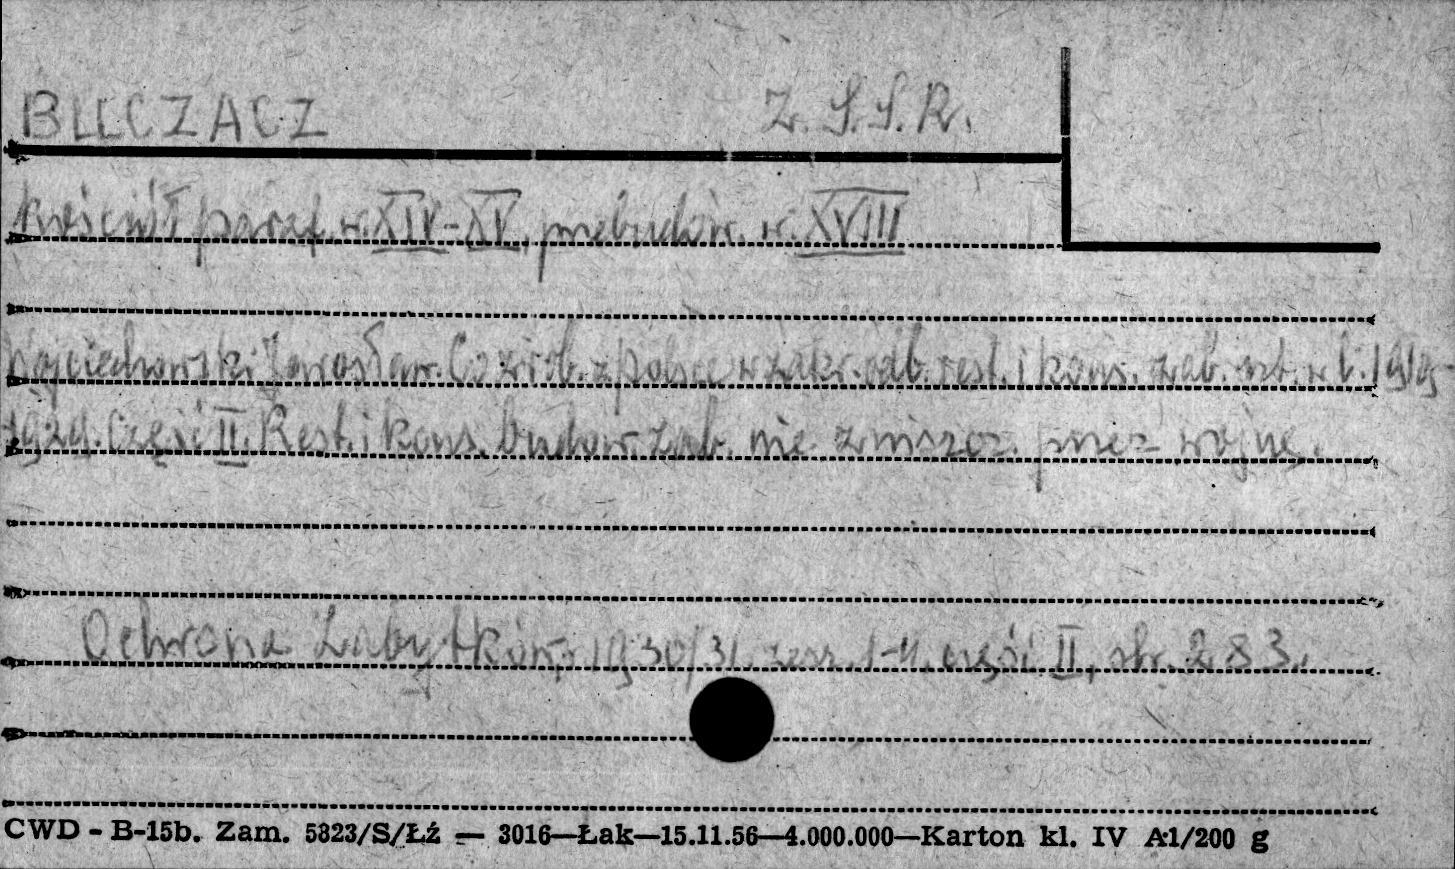 BUCZACZ Z.S.S.R.
Kościół paraf. w. XIV-XV, przebudow. w. XVIII
Wojciechowski Jarosław. Co zrob. z Polsce w zakr. odb. rest. i kons. zab. szt. w l. 1919-
1929. Część II. Rest. i kons. budow. zab. nie zniszcz. przez wojnę.
Ochrona Zabytków, 1930/31, zesz. 1-4, część II, str. 283.
CWD - B-15b. Zam. 5823/S/Łź — 3016—Łak—15.11.56—4.000.000—Karton kl. IV A1/200 g